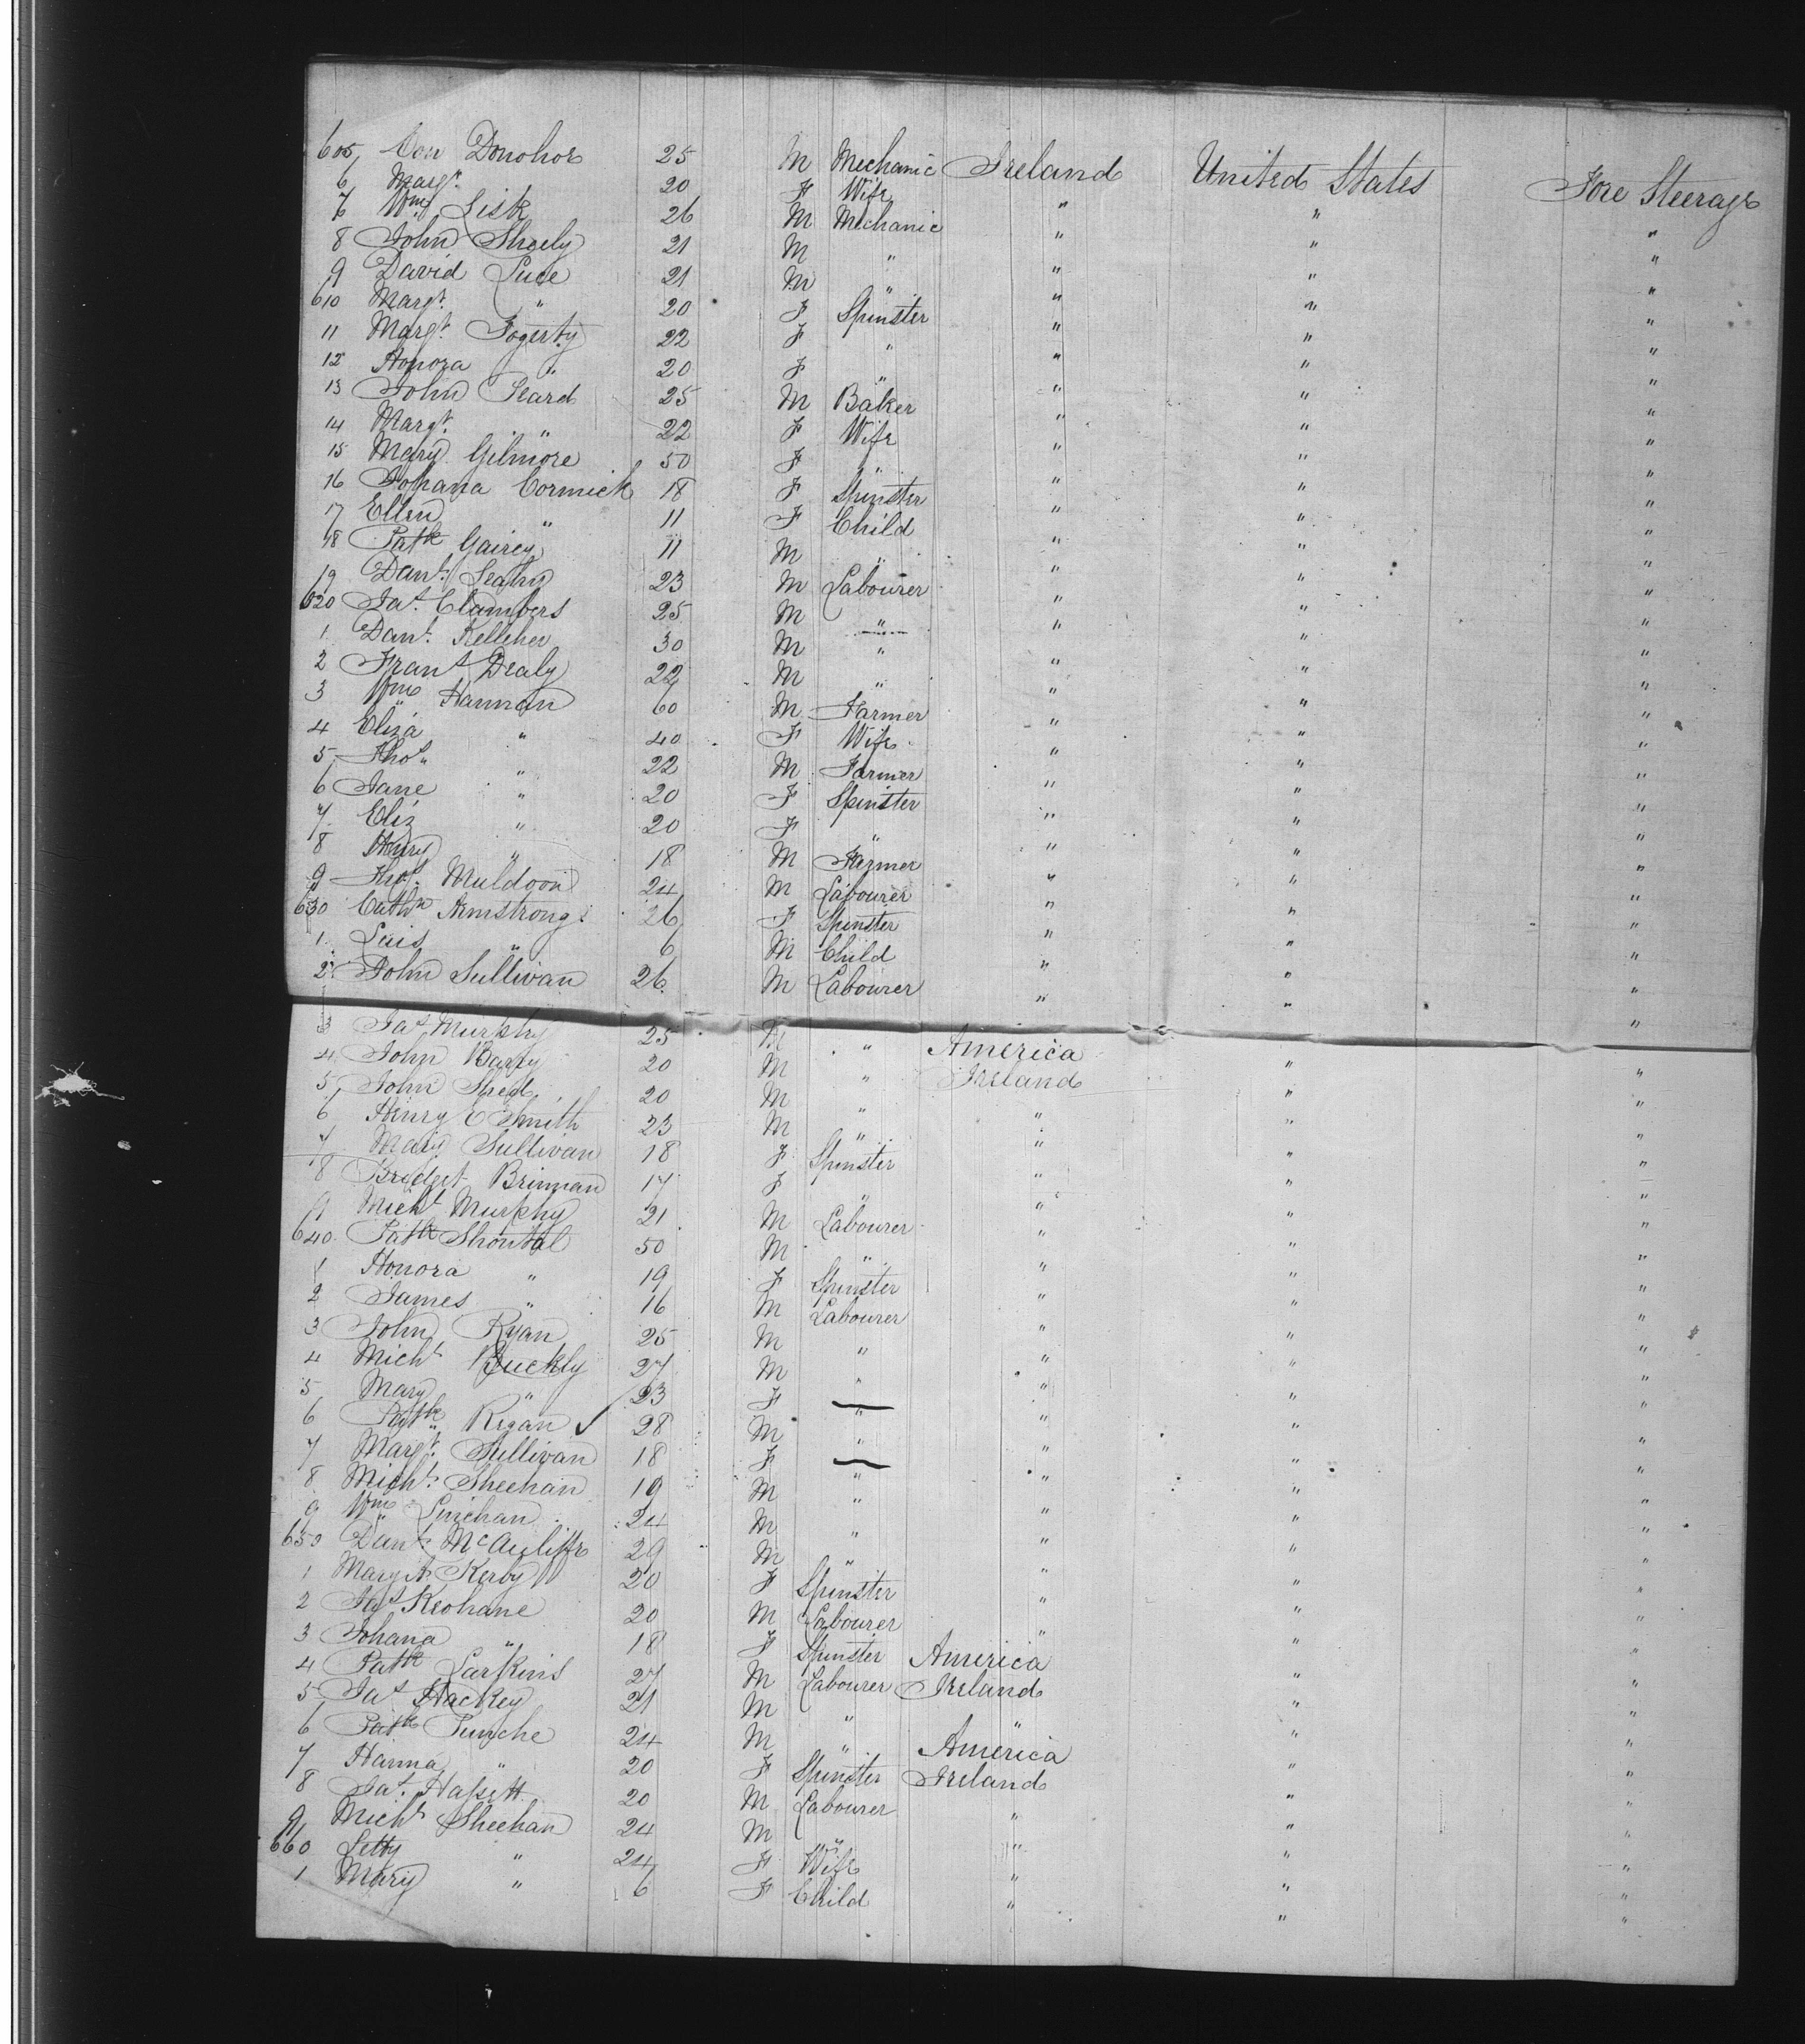 605 Con Donohoe 25 M Mechanic Ireland United States Fore Steerage
6 Margt. 20 F Wife " " "
7 Wm Lisk 26 M Mechanic " " "
8 John Sheely 21 M " " " "
9 David Luce 21 M " " " "
610 Margt. " 20 F Spinster " " "
11 Margt. Fogerty 22 F " " " "
12 Honora " 20 F " " " "
13 John Peard 25 M Baker " " "
14 Margt. " 22 F Wife " " "
15 Mary Gilmore 50 F " " " "
16 Johana Cormick 18 F Spinster " " "
17 Ellen " 11 F Child " " "
18 Patk Gairey 11 M " " " "
19 Danl. Leahy 23 M Labourer " " "
620 Jas. Clambers 25 M " " " "
1 Danl. Kelleher 30 M " " " "
2 Frans Dealy 22 M " " " "
3 Wm Hannan 60 M Farmer " " "
4 Eliza " 40 F Wife " " "
5 Thos " 22 M Farmer " " "
6 Jane " 20 F Spinster " " "
7 Eliz " 20 F " " " "
8 Henry " 18 M Farmer " " "
9 Thos. Muldoon 24 M Labourer " " "
630 Cathn Armstrong 26 F Spinster " " "
1 Lais " 6 M Child " " "
2 John Sullivan 26 M Labourer " " "
3 Jas Murphy 25 M " America " "
4 John Barry 20 M " Ireland " "
5 John Shed 20 M " " " "
6 Henry E Smith 23 M " " " "
7 Mary Sullivan 18 F Spinster " " "
8 Bridget Brinnan 17 F " " " "
9 Michl Murphy 21 M Labourer " " "
640 Patk Shontal 50 M " " " "
1 Honora " 19 F Spinster " " "
2 James " 16 M Labourer " " "
3 John Ryan 25 M " " " "
4 Michl Buckly 27 M " " " "
5 Mary " 23 F — " " "
6 Patk Regan ✓ 28 M " " " "
7 Margt. Sullivan 18 F — " " "
8 Michl. Sheehan 19 M " " " "
9 Wm Linehan 24 M " " " "
650 Danl. McAuliffe 29 M " " " "
1 Margt. Kerby 20 F Spinster " " "
2 Jas Keohane 20 M Labourer " " "
3 Johana " 18 F Spinster America " "
4 Patk Larkins 27 M Labourer Ireland " "
5 Jas Hackey 21 M " " " "
6 Patk 24 M " America " "
7 Hanna " 20 F Spinster Ireland " "
8 Jas. Hassett 20 M Labourer " " "
9 Michl Sheehan 24 M " " " "
660 Letty " 24 F Wife " " "
1 Mary " 6 F Child " " "